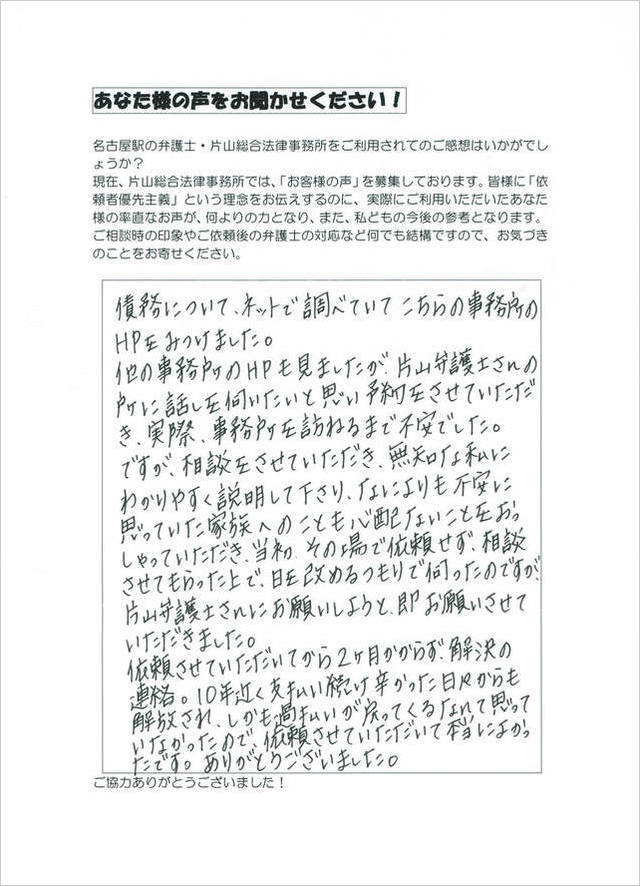 あなた様の声をお聞かせください！
名古屋駅の弁護士・片山総合法律事務所をご利用されてのご感想はいかがでし
ょうか？
現在、片山総合法律事務所では、「お客様の声」を募集しております。皆様に「依
頼者優先主義」という理念をお伝えするのに、実際にご利用いただいたあなた
様の率直なお声が、何よりの力となり、また、私どもの今後の参考となります。
ご相談時の印象やご依頼後の弁護士の対応など何でも結構ですので、お気づき
のことをお寄せください。
債務について、ネットで調べていてこちらの事務所の
HPをみつけました。
他の事務所のHPも見ましたが、片山弁護士さんの
所に話しを伺いたいと思い予約をさせていただ
き、実際、事務所を訪ねるまで不安でした。
ですが、相談をさせていただき、無知な私に
わかりやすく説明して下さり、なによりも不安に
思っていた家族へのことも心配ないことをおっ
しゃっていただき、当初、その場で依頼せず、相談
させてもらった上で、日を改めるつもりで伺ったのですが、
片山弁護士さんにお願いしようと、即お願いさせて
いただきました。
依頼させていただいてから2ヶ月かからず、解決の
連絡。10年近く支払い続け辛かった日々からも
解放され、しかも過払いが戻ってくるなんて思って
いなかったので、依頼させていただいて本当によかっ
たです。ありがとうございました。
ご協力ありがとうございました！